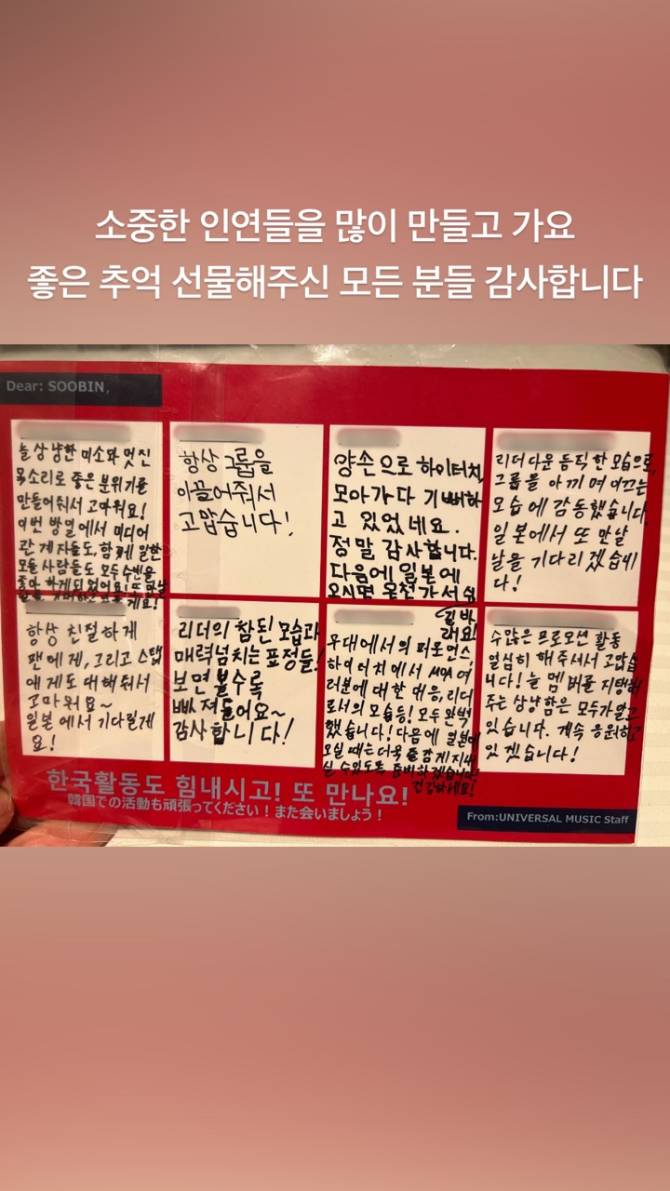 소중한 인연들을 많이 만들고 가요
좋은 추억 선물해주신 모든 분들 감사합니다
Dear: SOOBIN,
늘 상냥한 미소와 멋진
목소리로 좋은 분위기를
만들어줘서 고마워요!
이번 방일에서 미디어
관계자들도, 함께 일한
모든 사람들도 모두 수빈을
좋아하게 되었어요!
항상 그룹을
이끌어줘서
고맙습니다!
양손으로 하이터치,
모아가 다 기뻐하
고 있었네요.
정말 감사합니다.
다음에 일본에
오시면 온천 가서 쉬
길 바
래요!
리더다운 듬직한 모습으로,
그룹을 아끼며 이끄는
모습에 감동했습니다.
일본에서 또 만날
날을 기다리겠습니
다!
항상 친절하게
팬에게, 그리고 스탭
에게도 대해줘서
고마워요~
일본에서 기다릴게
요!
리더의 참된 모습과
매력넘치는 표정들!
보면 볼수록
빠져들어요~
감사합니다!
무대에서의 퍼포먼스,
하이터치에서 MOA 여
러분에 대한 대응, 리더
로서의 모습 등! 모두 완벽
했습니다! 다음에 일본에
오실 때는 더욱 즐겁게 지내
실 수 있도록 준비하겠습니다!
건강하세요!
수많은 프로모션 활동
열심히 해주셔서 고맙습
니다! 늘 멤버를 지탱해
주는 상냥함은 모두가 알고
있습니다. 계속 응원하고
있겠습니다!
한국활동도 힘내시고! 또 만나요!
韓国での活動も頑張ってください！また会いましょう！
From:UNIVERSAL MUSIC Staff